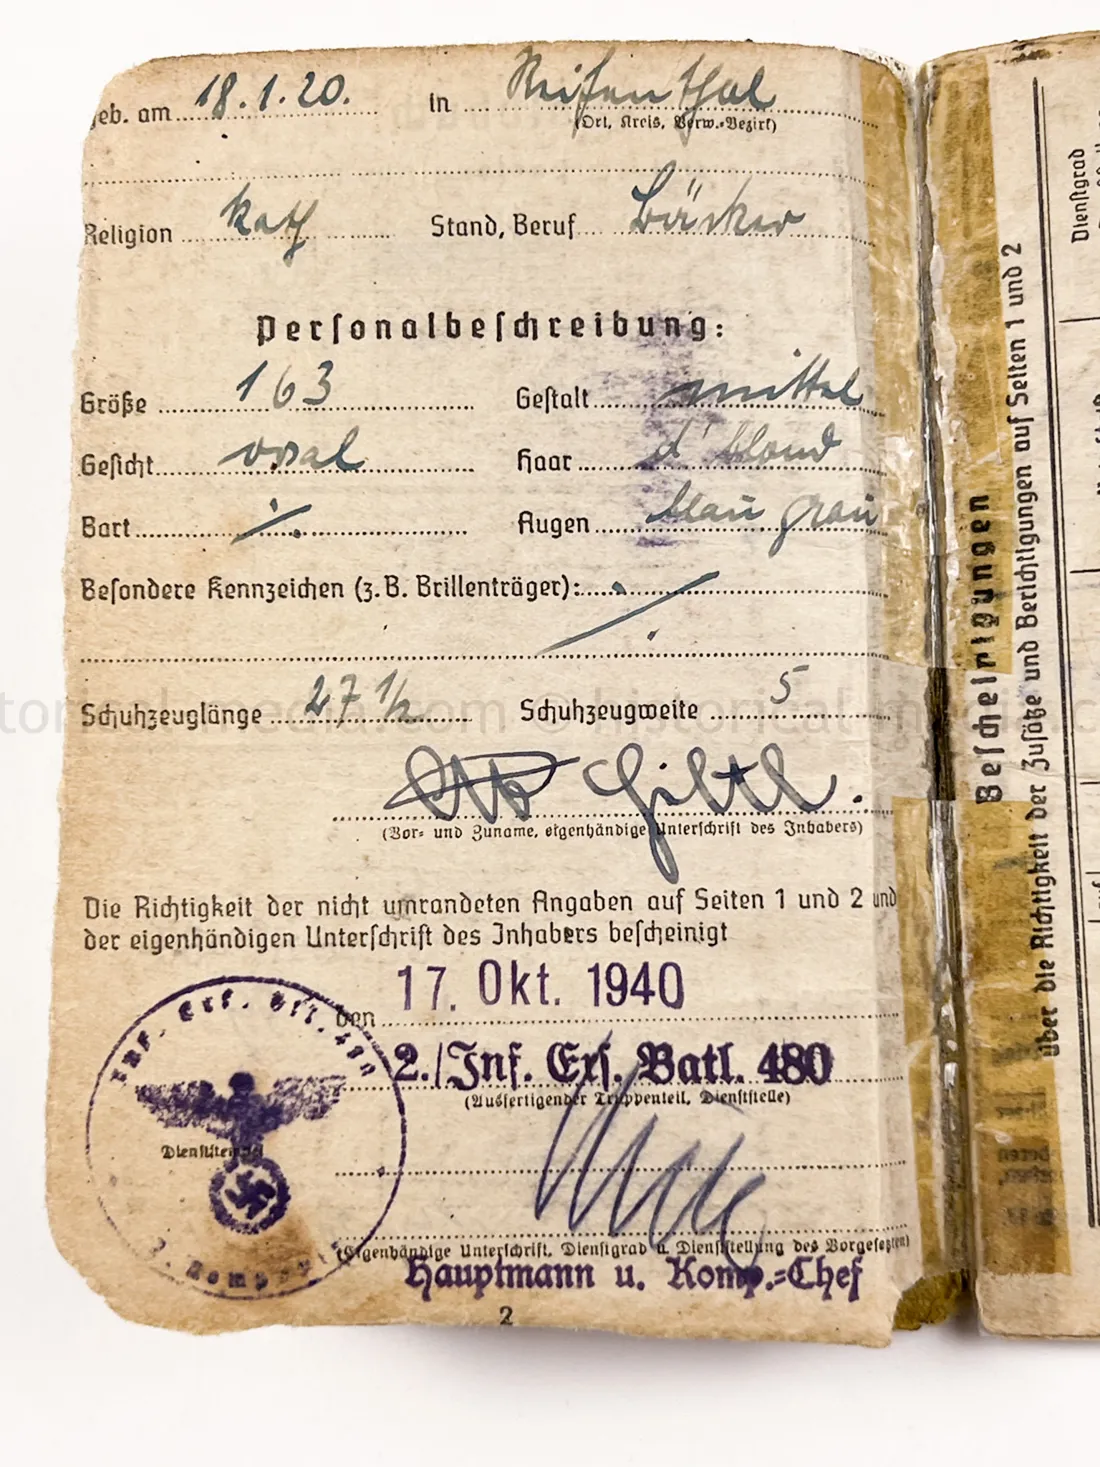 geb. am 18.1.20. in Reifenthal
(Ort, Kreis, Verw.-Bezirk)
Religion kath Stand, Beruf Bäcker
Personalbeschreibung:
Größe 163 Gestalt mittel
Gesicht oval Haar d' blond
Bart ·/. Augen blau grau
Besondere Kennzeichen (z. B. Brillenträger): ·/.
Schuhzeuglänge 27 1/2 Schuhzeugweite 5
Otto
(Vor- und Zuname, eigenhändige Unterschrift des Inhabers)
Die Richtigkeit der nicht umrandeten Angaben auf Seiten 1 und 2 und
der eigenhändigen Unterschrift des Inhabers bescheinigt
den 17. Okt. 1940
2./Inf. Ers. Batl. 480
(Ausfertigender Truppenteil, Dienststelle)
Inf. Ers. Btl. 480
Dienststempel
2. Kompanie
(Eigenhändige Unterschrift, Dienstgrad u. Dienststellung des Vorgesetzten)
Hauptmann u. Komp.=Chef
2
Bescheinigungen
über die Richtigkeit der Zusätze und Berichtigungen auf Seiten 1 und 2
Dienstgrad